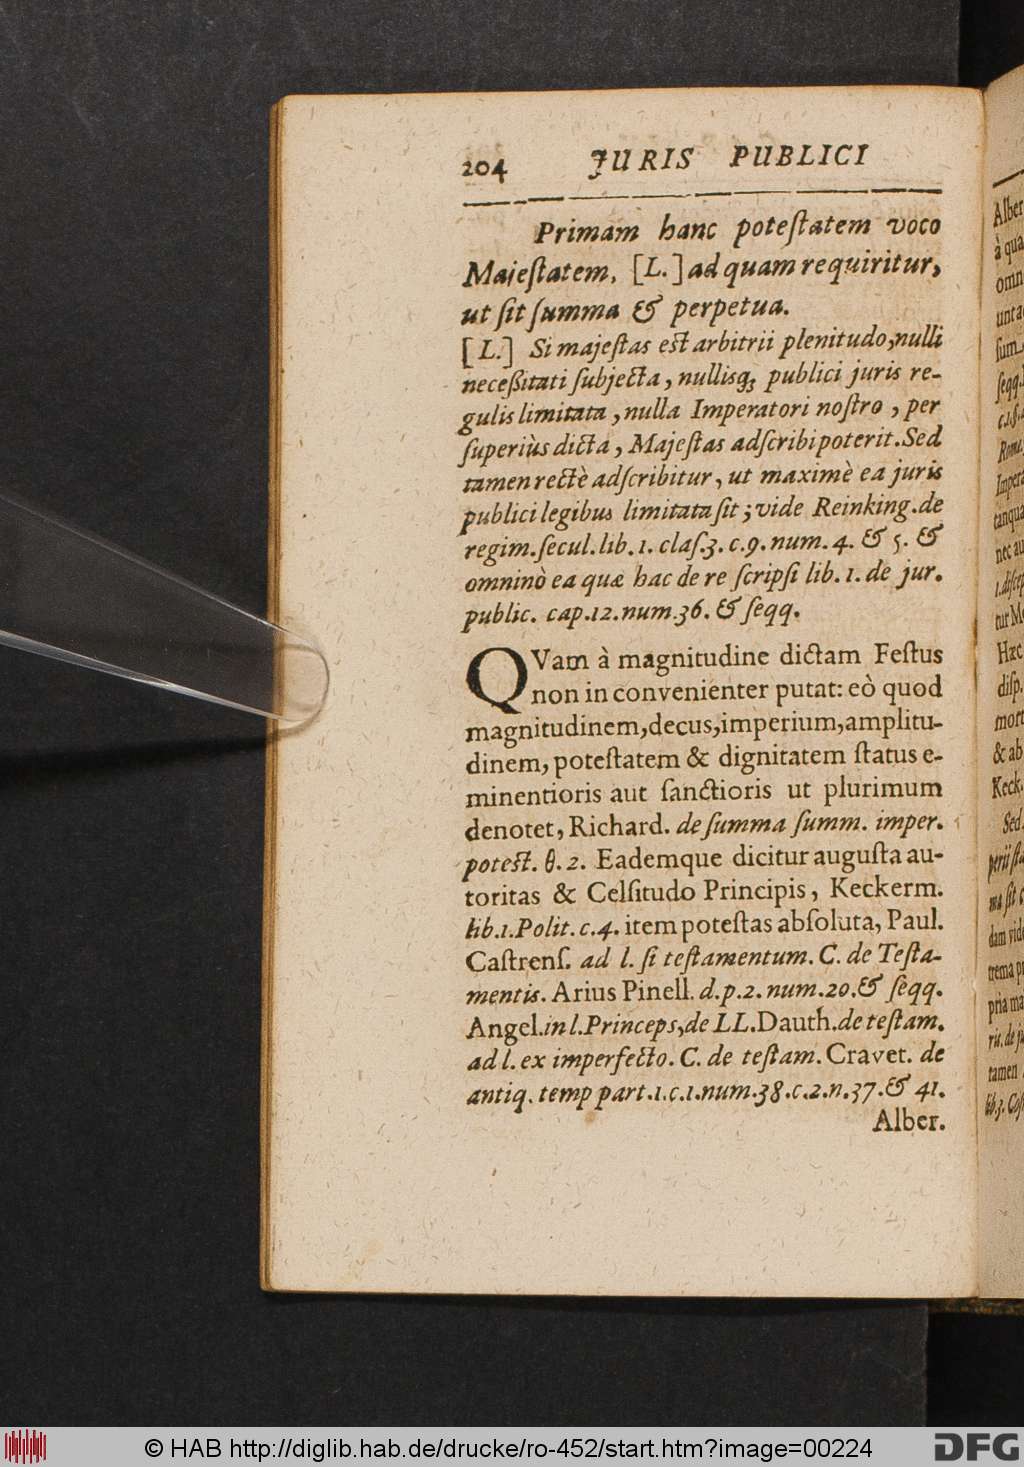 204 JURIS PUBLICI
Primam hanc poteſtatem voco
Majeſtatem, [L.] ad quam requiritur,
ut ſit ſumma & perpetua.
[L.] Si majeſtas est arbitrii plenitudo, nulli
neceßitati ſubjecta, nullisq; publici juris re-
gulis limitata, nulla Imperatori noſtro, per
ſuperiùs dicta, Majeſtas adſcribi poterit. Sed
tamen rectè adſcribitur, ut maximè ea juris
publici legibus limitata ſit; vide Reinking. de
regim. ſecul. lib. 1. claſ. 3. c. 9. num. 4. & 5. &
omninò ea quæ hac de re ſcripſi lib. 1. de jur.
public. cap. 12. num. 36. & ſeqq.
QVam à magnitudine dictam Feſtus
non inconvenienter putat: eò quod
magnitudinem, decus, imperium, amplitu-
dinem, poteſtatem & dignitatem ſtatus e-
minentioris aut ſanctioris ut plurimum
denotet, Richard. de ſumma ſumm. imper.
potest. θ. 2. Eademque dicitur auguſta au-
toritas & Celſitudo Principis, Keckerm.
lib. 1. Polit. c. 4. item poteſtas abſoluta, Paul.
Caſtrenſ. ad l. ſi teſtamentum. C. de Teſta-
mentis. Arius Pinell. d. p. 2. num. 20. & ſeqq.
Angel. in l. Princeps, de LL. Dauth. de teſtam.
ad l. ex imperfecto. C. de teſtam. Cravet. de
antiq. temp part. 1. c. 1. num. 38. c. 2. n. 37. & 41.
Alber.
Alber
à qua
omn
unta
ſum
ſeqq.
c.1.ſ.
Roma
Impera
tanqua
nec au
1. diſcep
tur M
Hæc
diſp.
mort
& ab
Keck.
Sed
perii ſta
ma ſit
dam vide
trema p
pria ma
ris. de j
tamen
lib. 3. Coſ
© HAB http://diglib.hab.de/drucke/ro-452/start.htm?image=00224
DFG